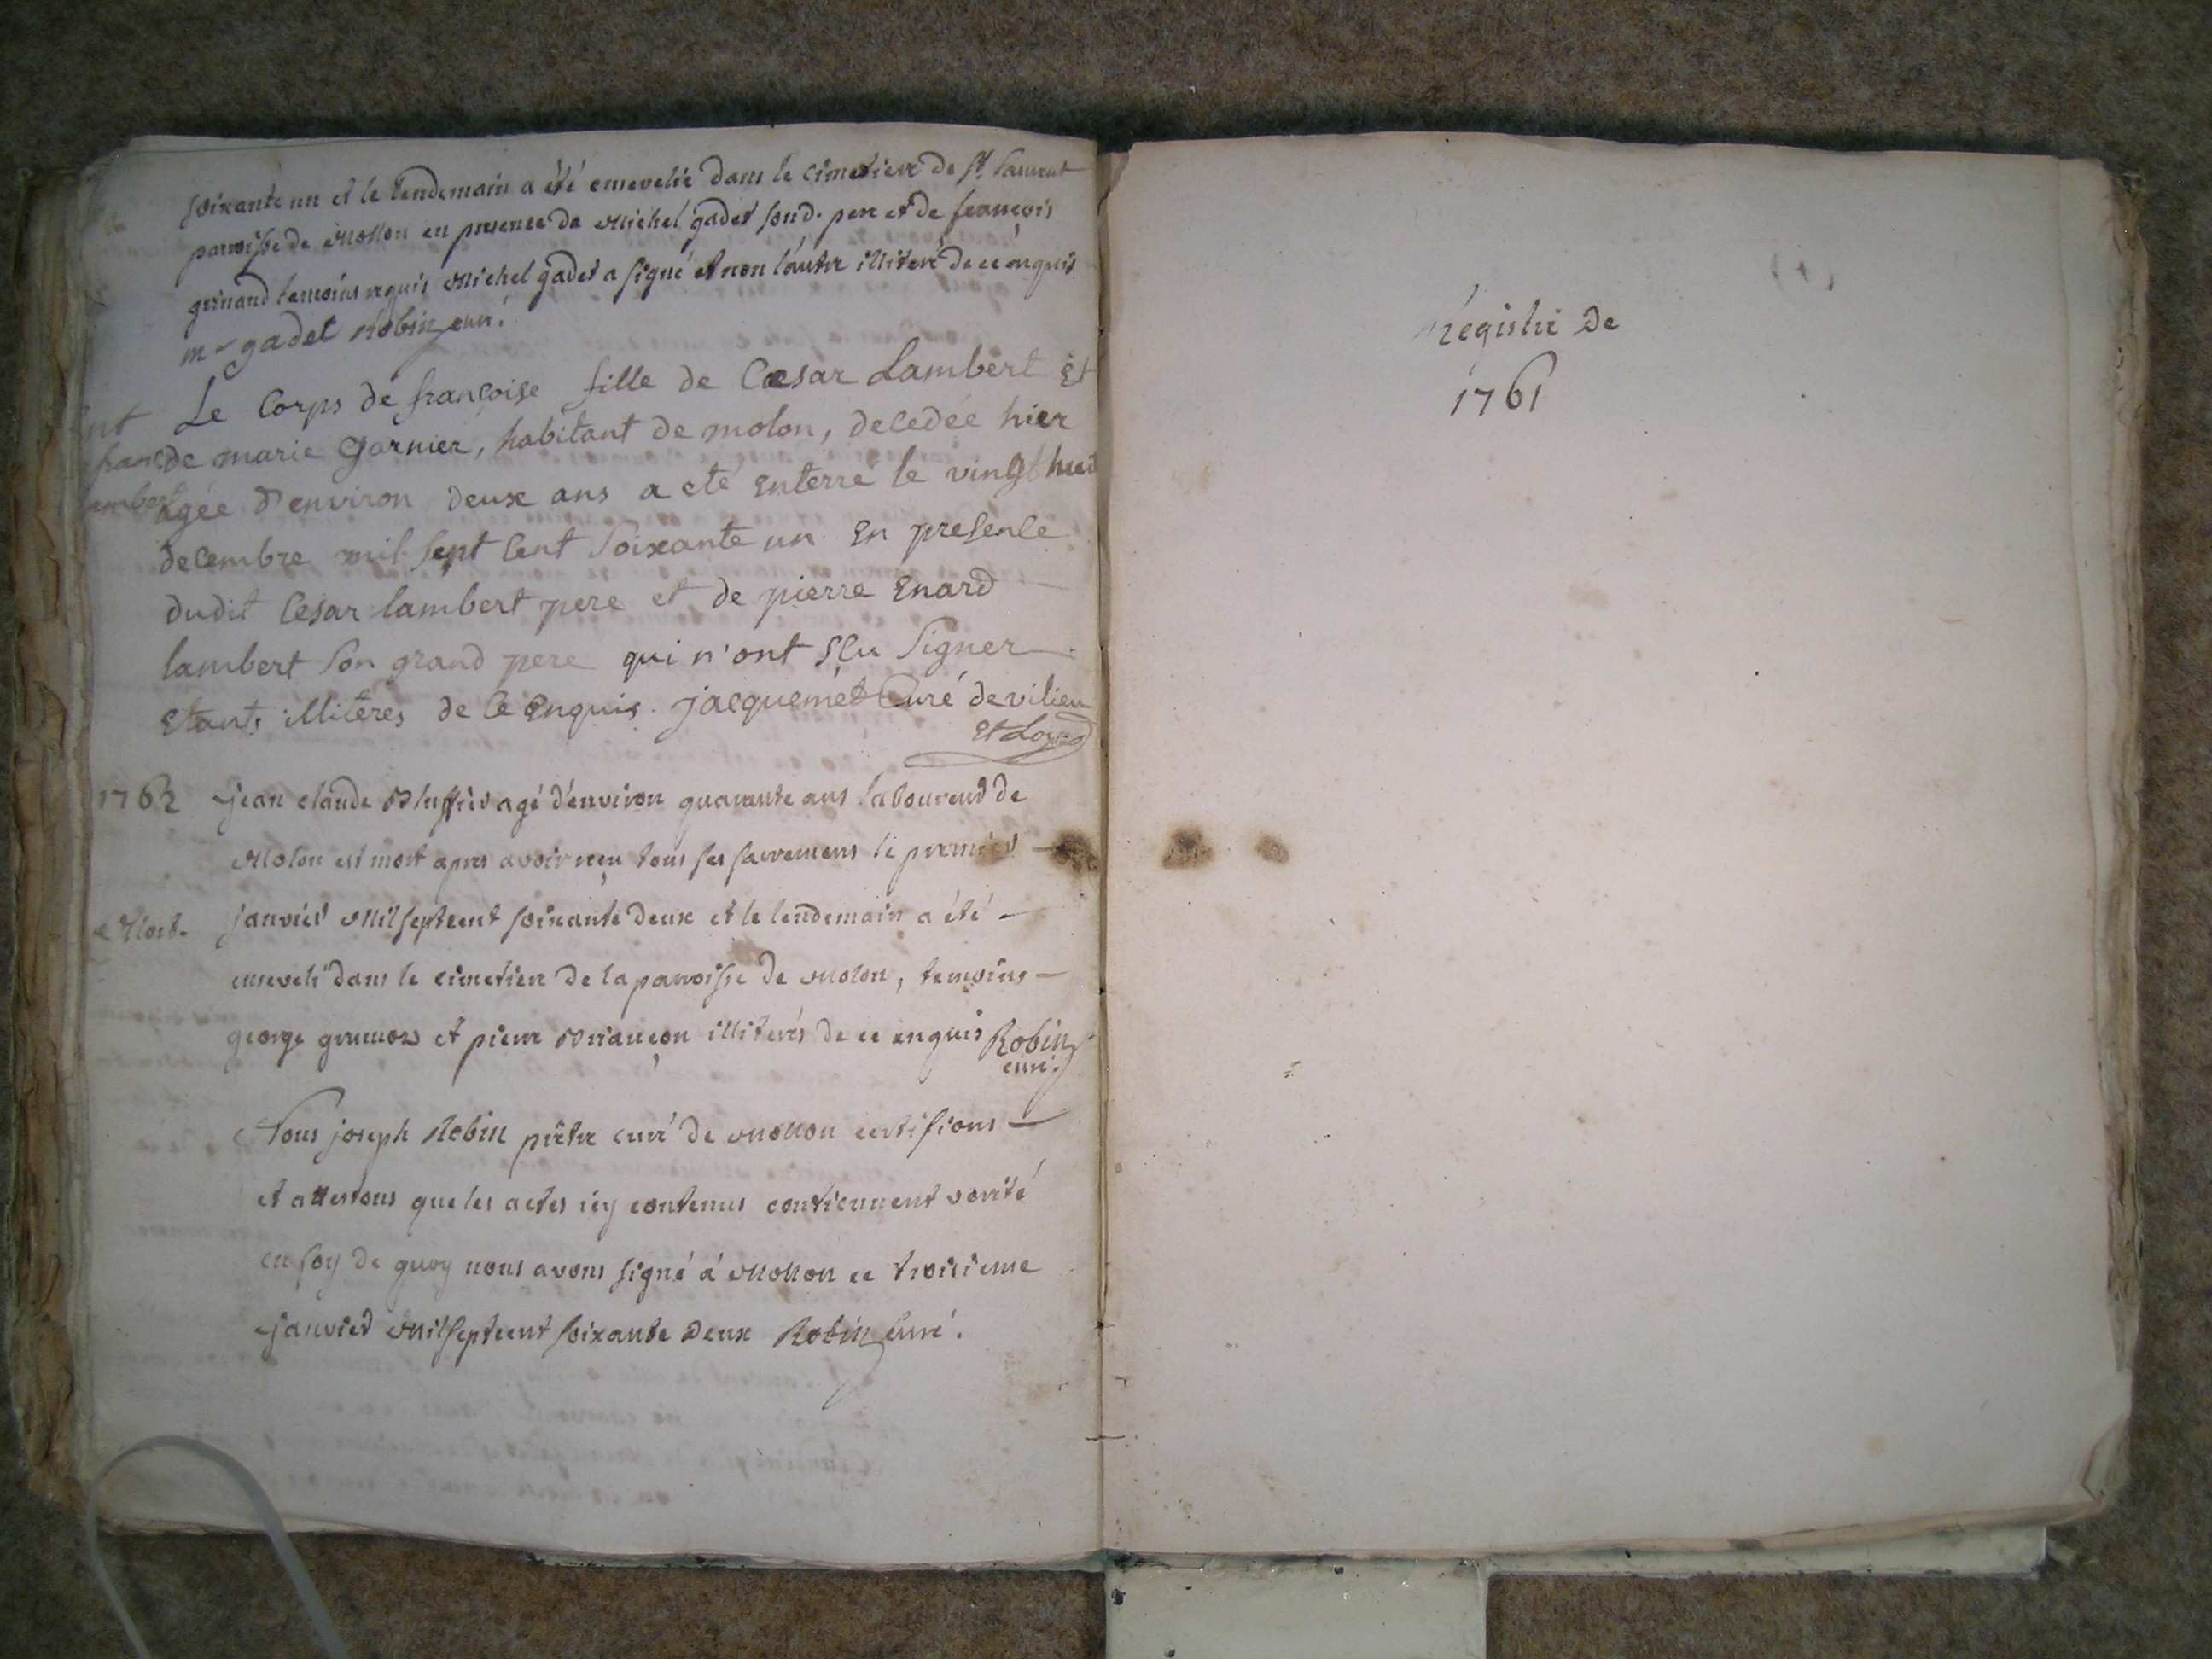 soixante un et le lendemain a été ensevelie dans le cimetiere de St. Laurent
paroisse de Mollon en presence de Michel gadet pere et de françois
temoins requis Michel gadet a signé et non l'autre illiteré de ce enquis
m gadet Robin curé.
Le Corps de françoise fille de Cæsar Lambert Et
de marie Garnier, habitant de molon, decedée hier
agée d'environ deux ans a eté Enterré le vingt huit
decembre mil sept cent Soixante un En presence
dudit Cesar lambert pere et de pierre Enard
lambert Son grand pere qui n'ont sçu Signer
Etants illiteres de ce Enquis. jacquemet Curé de vilieu
Et Loyes
1762
jean claude agé d'environ quarante ans laboureur de
Molon est mort apres avoir reçu tous ses sacremens le premier
Mort.
janvier Mil sept cent soixante deux et le lendemain a été
enseveli dans le cimetiere de la paroisse de Molon, temoins
george et pierre Briançon illiterés de ce enquis Robin
curé.
Nous joseph Robin prêtre curé de Mollon certifions
et attestons que les actes icy contenus contiennent verité
en foy de quoy nous avons signé à Mollon ce troisieme
janvier Mil sept cent soixante deux Robin Curé.
régistre de
1761